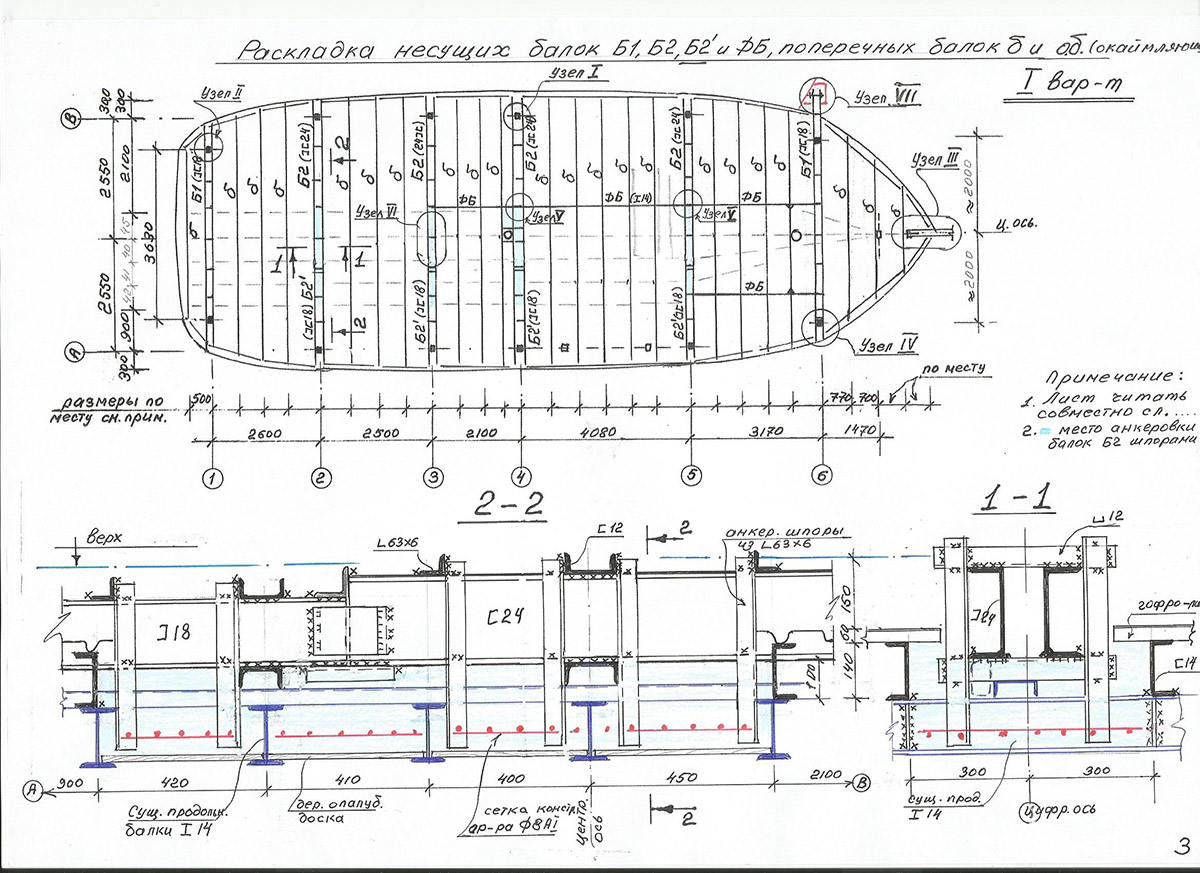 Раскладка несущих балок Б1, Б2, Б2' и ФБ, поперечных балок б и об. (окаймляющ
I вар-т
Узел I
Узел II
Узел VII
Узел III
Узел VI
Узел V
Узел V
Узел IV
В
А
300
300
2550
2100
3630
2550
900
300
Б1 (][18)
Б2 (][24)
Б2
Б2 (][24)
Б2 (][24)
Б1 (][18)
б б б б б б б б б б б б б б б
ФБ
ФБ (I14)
ФБ
(][18) Б2'
Б2' (][18)
Б2' (][18)
Б2' (][18)
2
2
1
1
≈2000
≈2000
Ц. ось.
по месту
размеры по
месту см. прим.
500
770
700
2600
2500
2100
4080
3170
1470
1
2
3
4
5
6
Примечание:
1. Лист читать
совместно с л. ....
2. место анкеровки
балок Б2 шпорами
2-2
1-1
верх
L63x6
[12
2
анкер. шпоры
из L63x6
]18
[24
160
60
140
100
А
900
420
410
400
450
2100
В
Сущ. продольн.
балки I 14
дер. опалуб.
доска
сетка констр.
ар-ра Ф8АI
центр.
ось
2
12
]24
гофро-ли
[14
300
300
сущ. прод.
I 14
Цифр. ось
3